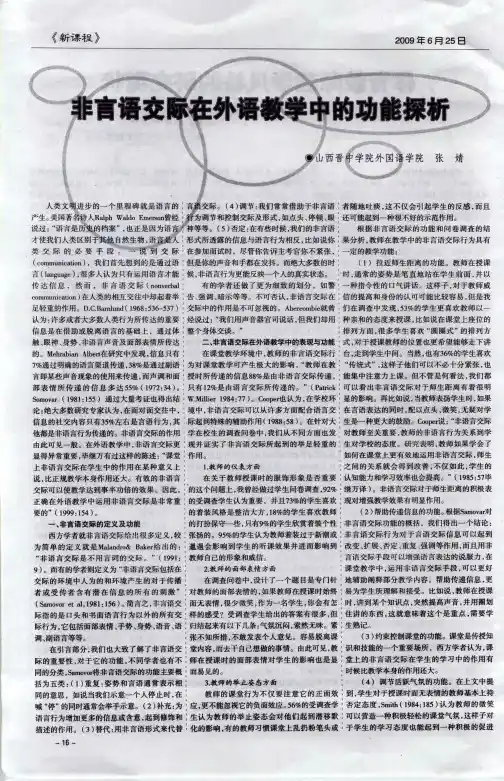 《新课程》
2009年6月25日
非言语交际在外语教学中的功能探析
●山西晋中学院外国语学院 张 婧
人类文明进步的一个里程碑就是语言的
产生。美国著名诗人Ralph Waldo Emerson曾经
说过:“语言是历史的档案”,也正是因为语言
才使我们人类区别于其他自然生物,语言是人
类交际的必要手段。一说到交际
(communication),我们首先想到的是通过语
言(language),很多人认为只有运用语言才能
传达信息。然而,非言语交际(nonverbal
communication)在人类的相互交往中却起着举
足轻重的作用。D.C.Barnlund(1968:536-537)
认为:许多或者大多数人类行为所传达的重要
信息是在借助或脱离语言的基础上,通过体
触、眼神、身势、非语言声音及面部表情所传达
的。Mehrabian Albert在研究中发现,信息只有
7%通过明确的语言渠道传递,38%是通过副语
言即某些声音现象的使用来传递,而声调和面
部表情所传递的信息多达55%(1972:34)。
Somovar(1981:155)通过大量考证也得出结
论:绝大多数研究专家认为,在面对面交往中,
信息的社交内容只有35%左右是言语行为,其
他都是非语言行为传递的。非言语交际的作用
由此可见一般。在外语教学中,非言语交际更
显得异常重要,毕继万有过这样的陈述:“课堂
上非语言交际在学生中的作用在某种意义上
说,比正规教学本身作用还大。有效的非语言
交际可以使教学达到事半功倍的效果。因此,
正确在外语教学中运用非语言交际是非常重
要的”(1999:154)。
一、非言语交际的定义及功能
西方学者就非言语交际给出很多定义,较
为简单的定义就是Malandro& Baker给出的:
“非语言交际是不用言词的交际。”(1991:
9)。而有的学者则定义为“非语言交际包括在
交际的环境中人为的和环境产生的对于传播
者或受传者含有潜在信息的所有的刺激”
(Samovor et al,1981:156)。简言之,非言语交际
指的是口头和书面语言行为以外的所有交
际行为,它包括面部表情、手势、身势、语音、语
调、副语言等等。
在引言部分,我们也大致了解了非言语交
际的重要性。对于它的功能,不同学者也有不
同的分类,Samovar将非语言交际的功能主要概
括为五类:(1)重复:姿势和言语通常表示相
同的意思,如说当我们示意一个人停止时,在
喊“停”的同时通常会举手示意。(2)补充:为
语言行为增加更多的信息或含意,起到修饰和
描述的作用。(3)替代:用非语言形式来代替
－16－
言语交际。(4)调节:我们常常借助于非言语
行为调节和控制交际及形式,如点头、停顿、眼
神等等。(5)否定:在有些时候,我们的非言语
形式所透露的信息与语言行为相反,比如说你
在参加面试时,尽管你告诉主考官你不紧张,
但是你的声音和手都在发抖。而绝大多数的时
候,非言语行为更能反映一个人的真实状态。
有的学者还做了更为细致的划分。如警
告、强调、暗示等等。不可否认,非语言交际在
交际中的作用是不可忽视的。Abercrombie就曾
经说过:“我们用声音器官司说话,但我们却用
整个身体交谈。”
二、非语言交际在外语教学中的表现与功能
在课堂教学环境中,教师的非言语交际行
为对课堂教学可产生极大的影响。“教师在教
授时所传递的信息88%是由非语言交际传递,
只有12%是由语言交际所传递的。”(Patrick
W.Millier 1984:77)。Cooper也认为,在学校环
境中,非言语交际可以从许多方面配合语言交
际起到特殊的辅助作用(1988:58)。在针对大
学在校生的调查问卷中,我们从不同方面也发
现并证实了非言语交际所起到的举足轻重的
作用。
1.教师的仪表方面
在关于教授课时的服饰形象是否重要
的这个问题上,我曾经做过学生问卷调查,92%
的受调查学生认为重要。并且73%的学生喜欢
的着装风格是整洁大方,18%的学生喜欢教师
的打扮保守一些,只有9%的学生欣赏着装个性
张扬的。95%的学生认为教师着装过于新潮或
邋遢会影响到学生的听课效果并进而影响到
教师自己的形象和威信。
2.教师的面部表情方面
在调查问卷中,设计了一个题目是专门针
对教师的面部表情的,如果教师在授课时始终
面无表情,很少微笑,作为一名学生,你会有怎
样的感受?受调查学生给出的答案有很多,但
归结起来有以下几条:气氛沉闷,索然无味。紧
张不知所措,不敢发表个人意见。容易脱离课
堂内容,而去干自己想做的事情。由此可见,教
师在授课时的面部表情对学生的影响也是显
而易见的。
3.教师的举止姿态方面
教师的课堂行为不仅要注意它的正面效
应,更不能忽视它的负面效应。56%的受调查学
生认为教师的举止姿态会对他们起到潜移默
化的影响,有的教师习惯课堂上乱扔粉笔头或
者随地吐痰,这不仅会引起学生的反感,而且
还可能起到一种很不好的示范作用。
根据非言语交际的功能和问卷调查的结
果分析,教师在教学中的非言语交际行为具有
一定的教学功能:
(1)拉近师生距离的功能。教师在授课
时,通常的姿势是笔直地站在学生前面,并以
一种指令性的口气讲话。这样子,对于教师威
信的提高和身份的认可可能比较容易,但是我
们在调查中发现,53%的学生更喜欢教师以一
种亲和的态度来授课。比如说在课堂上座位的
排列方面,很多学生喜欢“圆圈式”的排列方
式,对于授课教师的位置也更希望能够走下讲
台,走到学生中间。当然,也有36%的学生喜欢
“传统式”,这样子他们可以不必十分紧张,也
能集中注意力上课。但不管是何看法,我们都
可以看出非言语交际对于师生距离有着很明
显的影响。再比如说,当教师表扬学生时,如果
在言语表达的同时,配以点头、微笑,无疑对学
生是一种更大的鼓励。Cooper说,“非语言交际
对教师至关重要,教师的非语言行为关系到学
生对学校的态度。研究表明,教师如果学会了
如何在课堂上更有效地运用非语言交际,师生
之间的关系就会得到改善,不仅如此,学生的
认知能力和学习效率也会提高。”(1985:57毕
继万译)。非语言交际对于师生距离的积极表
现对增强教学效果有明显作用。
(2)帮助传递信息的功能。根据Samovar对
非言语交际功能的概括,我们得出一个结论:
非言语交际行为对于言语交际信息可以起到
改变、扩展、否定、重复、强调等作用,而且用非
言语交际手段可以增强语言表达的说服力。在
课堂教学中,运用非语言交际手段,可以更好
地辅助阐释部分教学内容。帮助传递信息,更
易为学生所理解和接受。比如说,教师在授课
时,讲到某个知识点,突然提高声音,并用圈划
住讲的东西,这就意味着这个是重点,需要学
生熟记。
(3)约束控制课堂的功能。课堂是传授知
识和技能的一个重要场所。西方学者认为,课
堂上的非言语交际在学生的学习中的作用有
时候比教学本身的作用还大。
(4)调节活跃气氛的功能。在上文中提
到,学生对于授课时面无表情的教师基本上持
否定态度,Smith(1984:185)认为教师的微笑
可以营造一种积极轻松的课堂气氛,这样子对
于学生的学习态度也能起到一种积极的促进